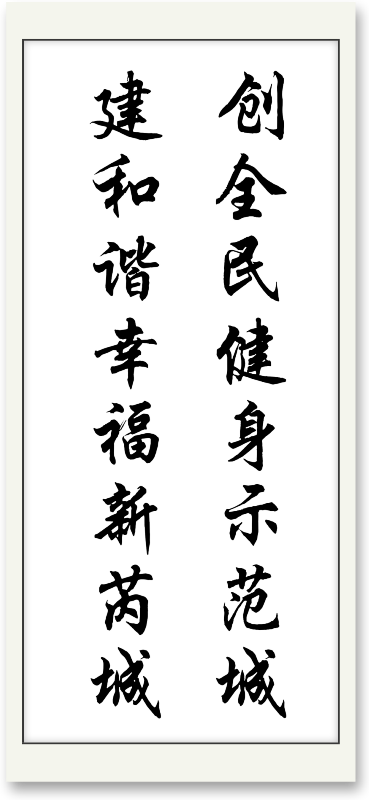 创全民健身示范城
建和谐幸福新芮城